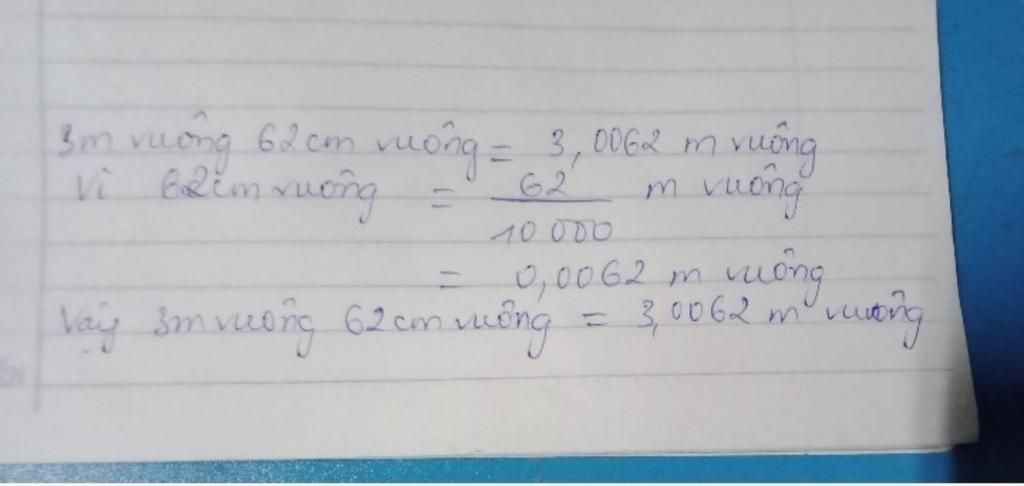 3m vuông 62cm vuông = 3,0062 m vuông
Vì 62cm vuông = 62/10 000 m vuông
= 0,0062 m vuông
Vậy 3m vuông 62cm vuông = 3,0062 m vuông